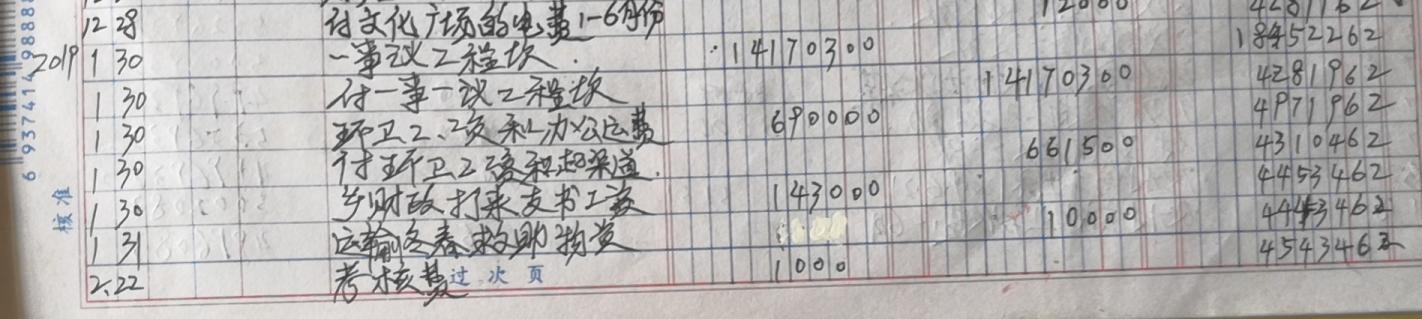 12 28 付文化广场的电费1-6月份 12000 4281162
2019 1 30 一事一议工程款 14170300 18452262
1 30 付一事一议工程款 14170300 4281962
1 30 环卫工工资和办公运费 690000 4971962
1 30 付环卫工资和起渠道 661500 4310462
1 30 乡财政打来支书工资 143000 4453462
1 31 运输冬春救助物资 10000 4443462
2.22 考核费 1000 4543462
过次页
核准
6 937414 98888